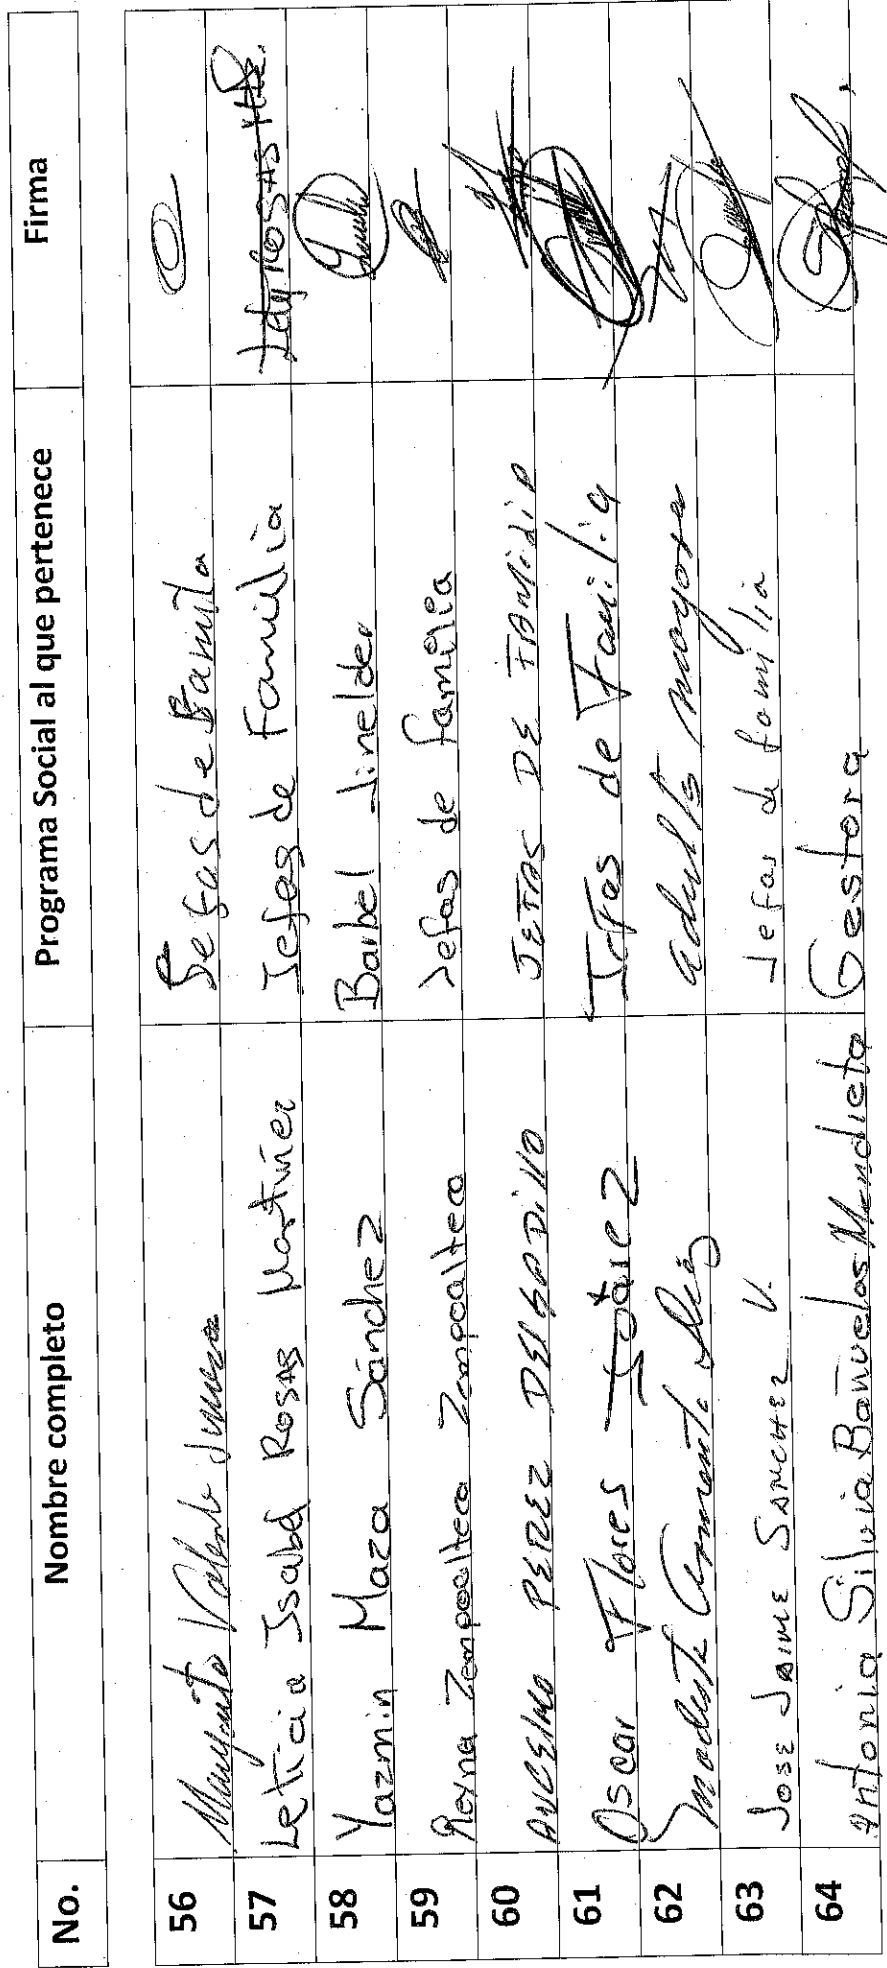 No. Nombre completo Programa Social al que pertenece Firma
56 Margarita Valente Jefas de Familia
57 Leticia Isabel Rosas Martinez Jefas de Familia Lety Rosas
58 Yazmin Maza Sánchez Barbel
59 Reyna Zempoalteca Zempoalteca Jefas de familia
60 PEREZ DELGADILLO JEFAS DE FAMILIA
61 Oscar Flores Jefas de Familia
62 Modesta adulto mayor
63 JOSE JAIME SANCHEZ V. Jefas de familia
64 Antonia Silvia Bañuelos Mendieta Gestora